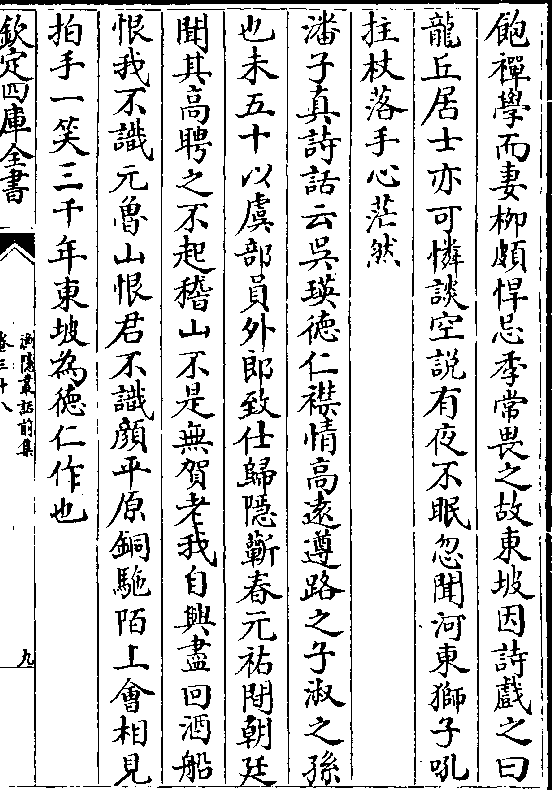 飽禪學而妻柳頗悍忌季常畏之故東坡因詩戲之曰
龍丘居士亦可憐談空説有夜不眠忽聞河東獅子吼
拄杖落手心茫然
潘子真詩話云吳瑛徳仁襟情髙逺遵路之子淑之孫
也未五十以虞部員外郎致仕歸隠蘄春元祐間朝廷
聞其髙聘之不起稽山不是無賀老我自興盡回酒船
恨我不識元魯山恨君不識顔平原銅駞陌上㑹相見
拍手一笑三千年東坡為徳仁作也
欽定四庫全書
漁隠叢話前集
卷三十八
九